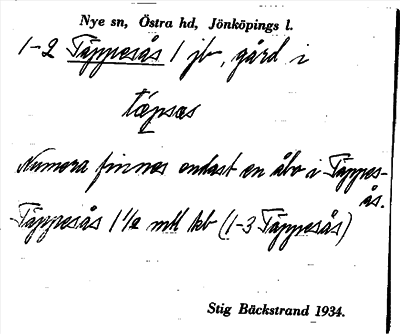 Nye sn, Östra hd, Jönköpings l.
1-2 Täppesås 1 jb, gård i
täpsas
Numera finnes endast en åbo i Täppes-
ås.
Täppesås 1 1/2 mtl kb (1-3 Täppesås)
Stig Bäckstrand 1934.